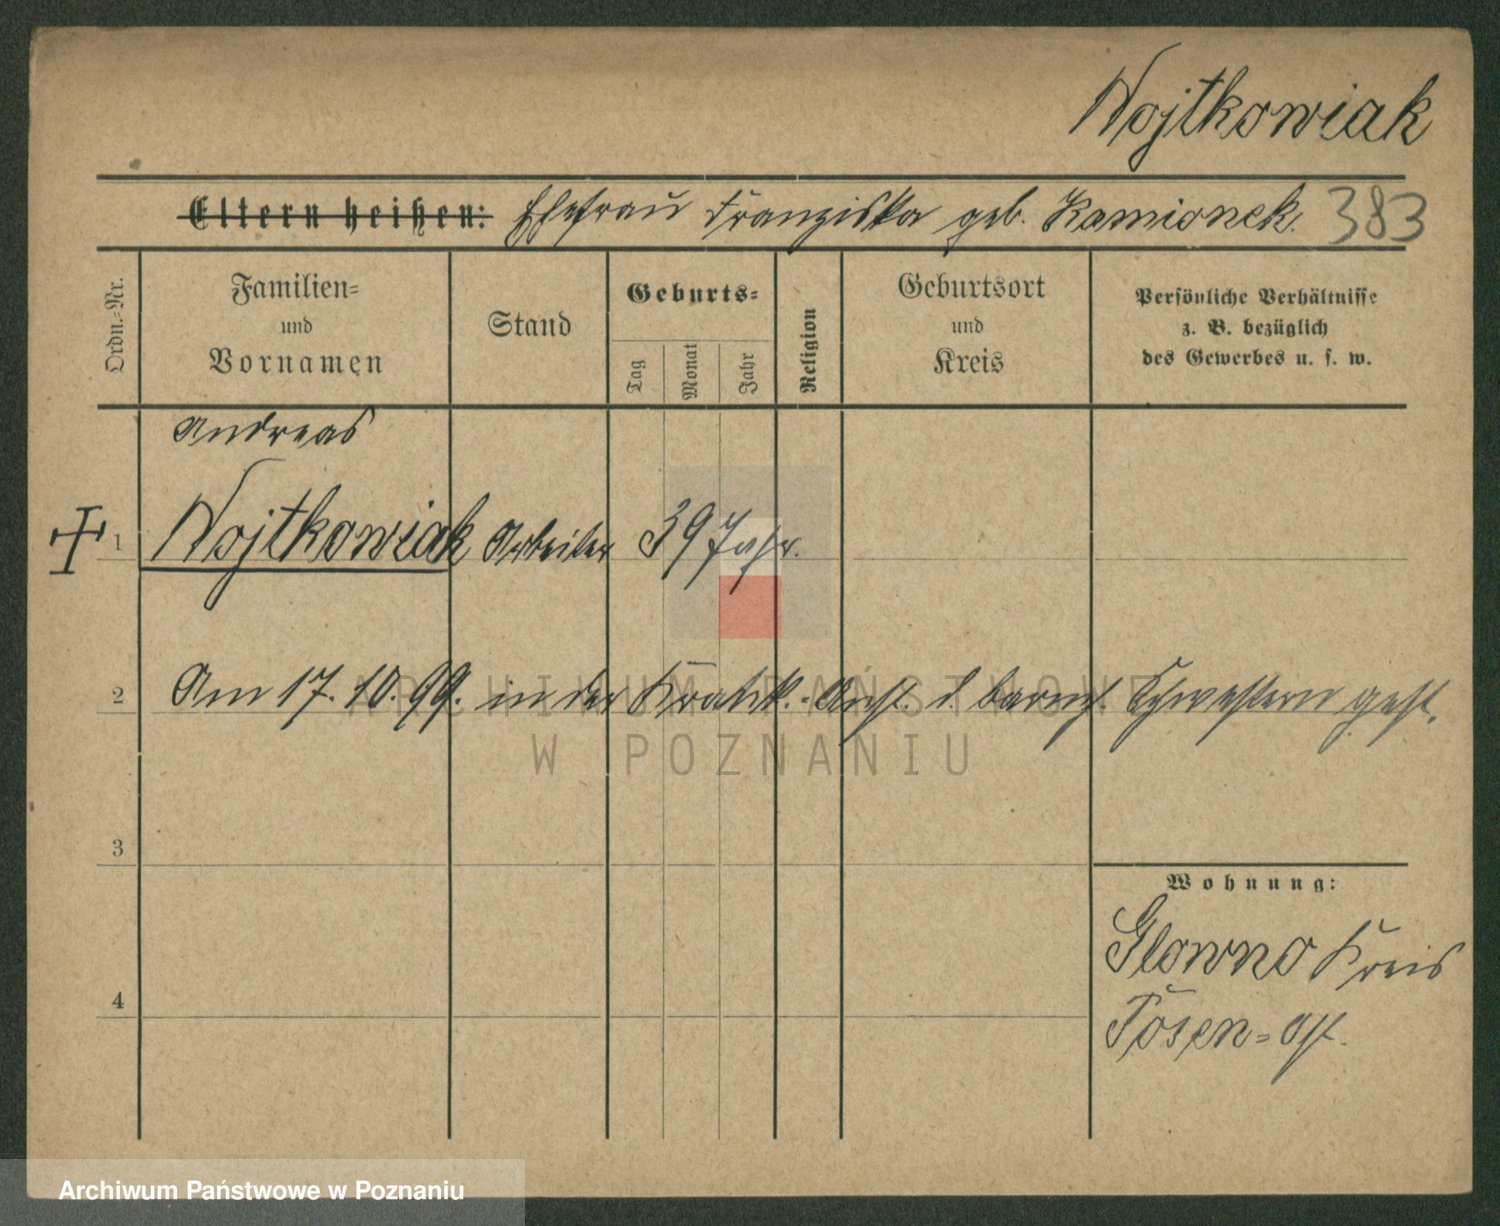 Wojtkowiak
Eltern heißen: Ehefrau Franziska geb. Kamionek. 383
Ordn.-Nr.
Familien-
und
Vornamen
Stand
Geburts-
Tag
Monat
Jahr
Religion
Geburtsort
und
Kreis
Persönliche Verhältnisse
z. B. bezüglich
des Gewerbes u. s. w.
Andreas
1 Wojtkowiak Arbeiter 39 Jahr.
2 Am 17. 10. 99. in der Krank.-Anst. d. barmh. Schwestern gest.
ARCHIWUM PAŃSTWOWE
W POZNANIU
3
Wohnung:
Glowno Kreis
4
Posen-Ost.
Archiwum Państwowe w Poznaniu